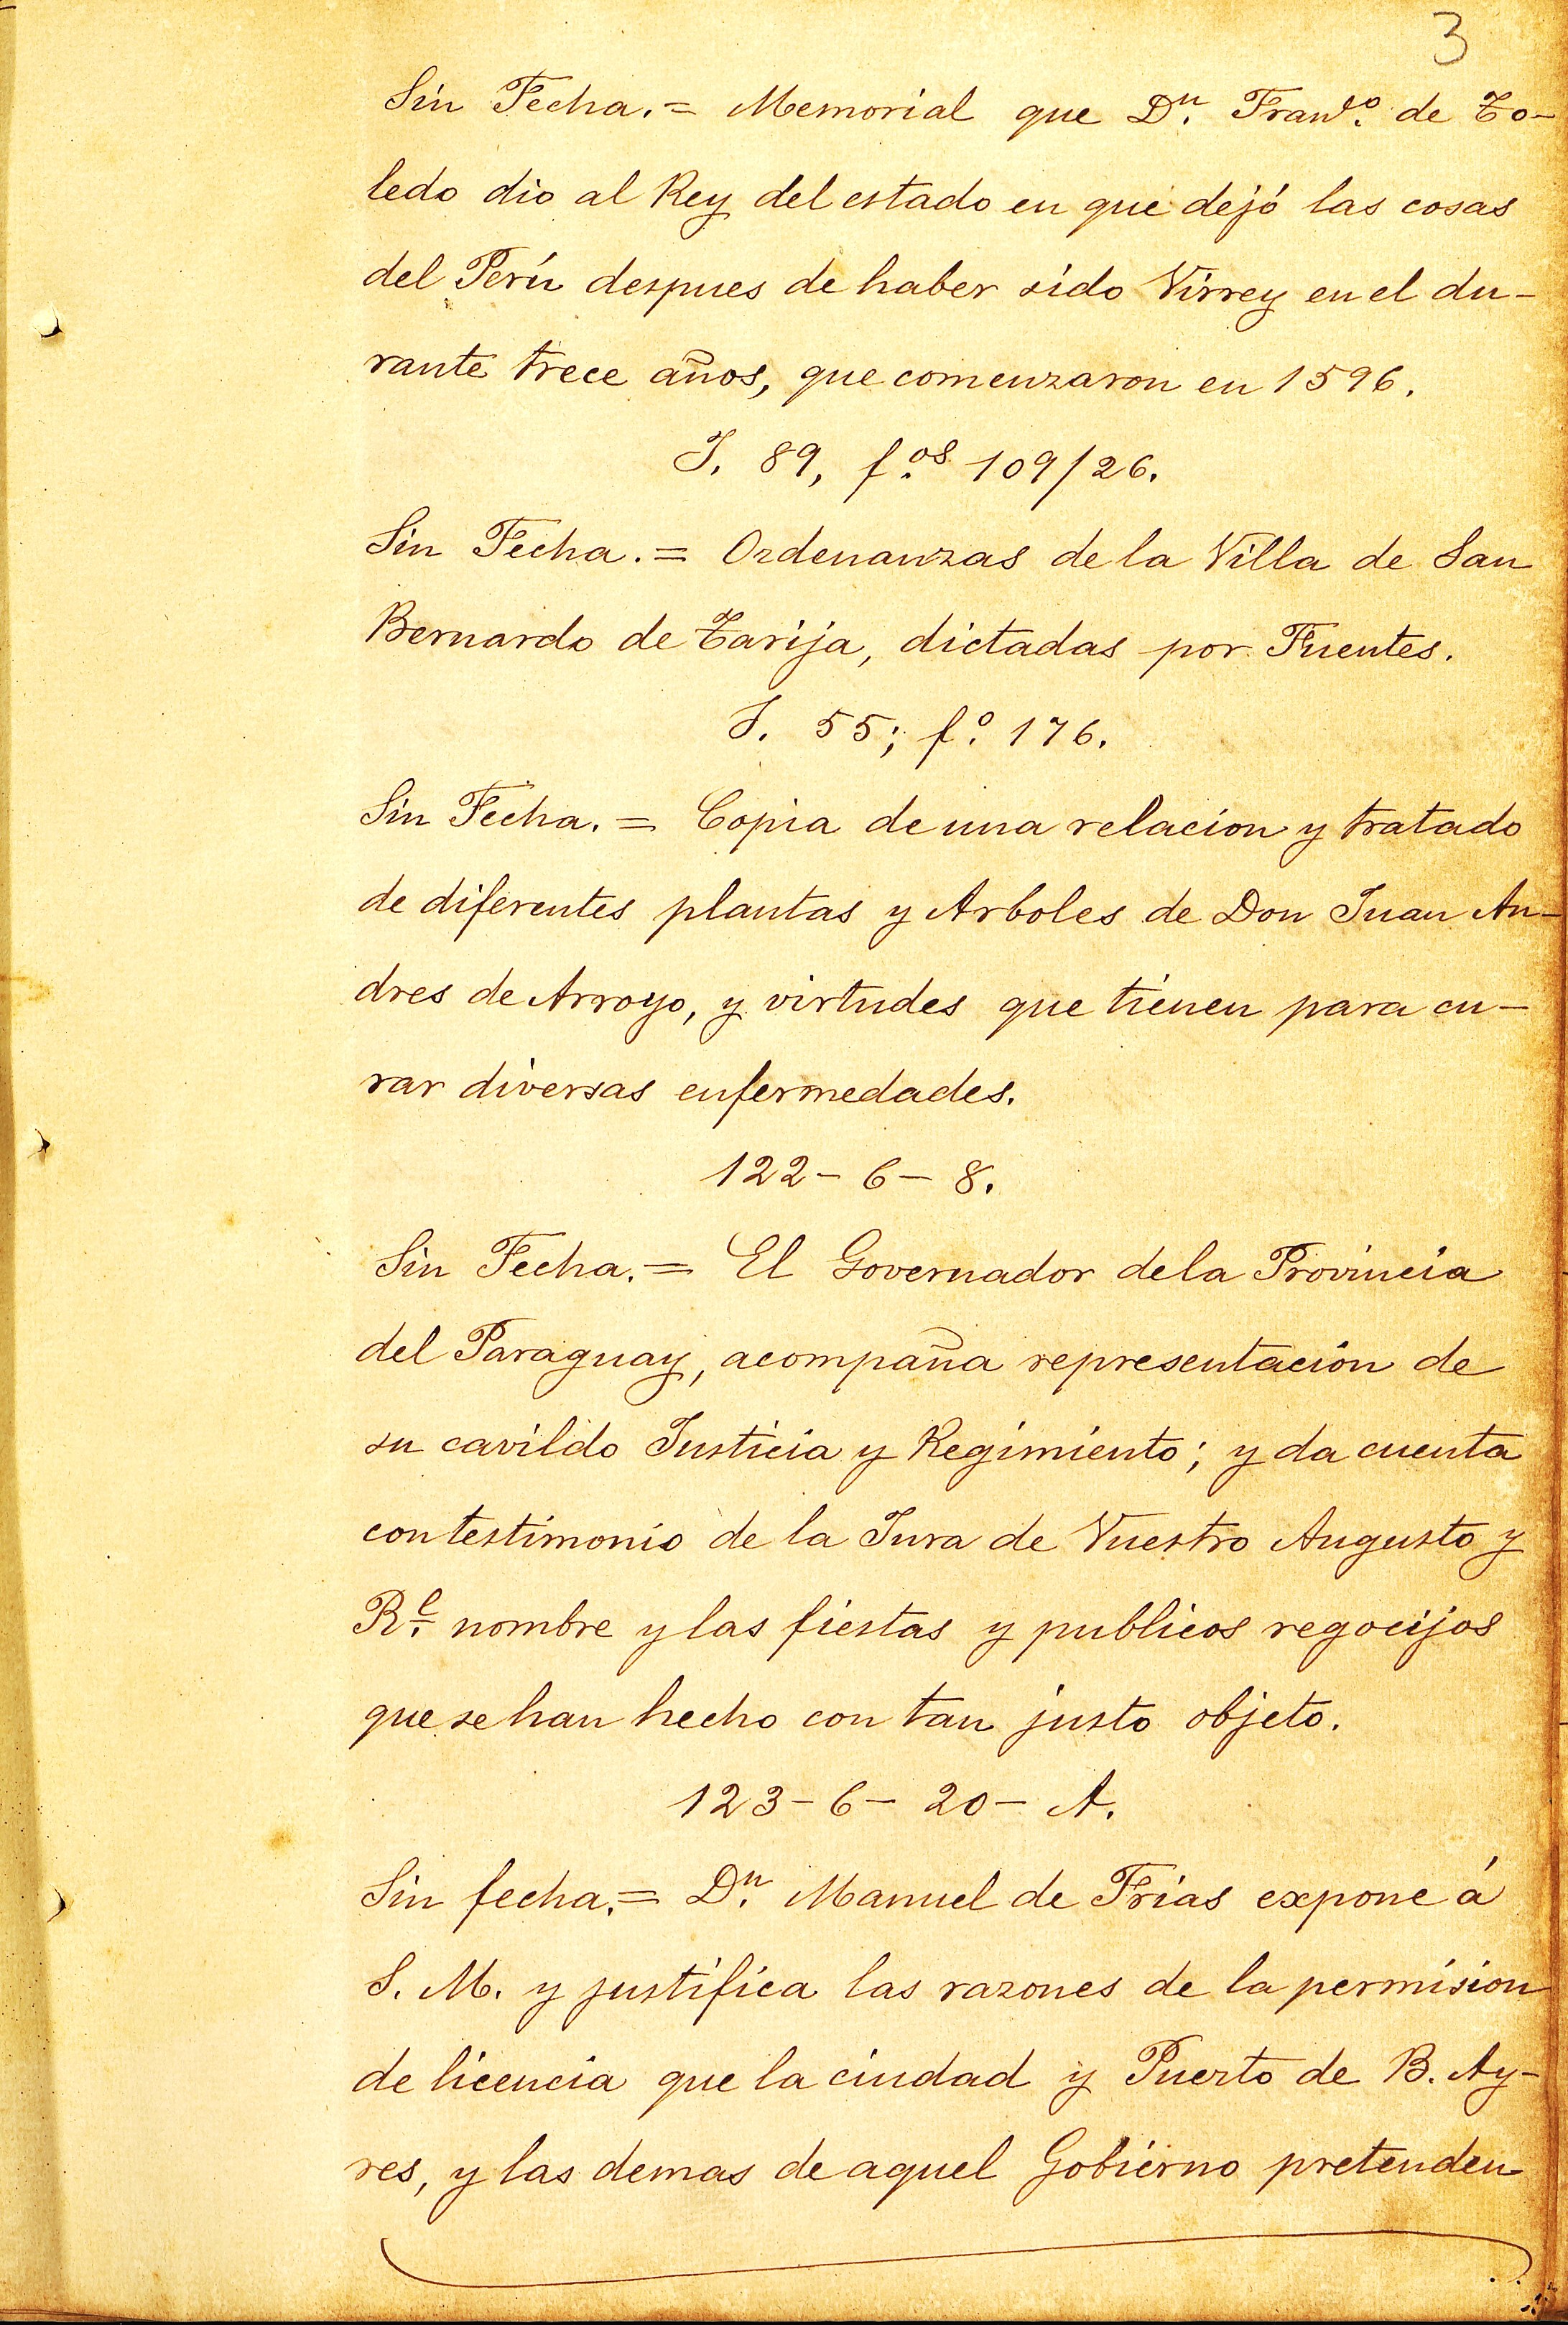 3
Sin Fecha. = Memorial que Dn. Franco. de To-
ledo dio al Rey del estado en que dejó las cosas
del Perú despues de haber sido Virrey en el du-
rante trece años, que comenzaron en 1596.
J. 89, f.os 109/26.
Sin Fecha. = Ordenanzas de la Villa de San
Bernardo de Tarija, dictadas por Fuentes.
J. 55; f.o 176.
Sin Fecha. = Copia de una relacion y tratado
de diferentes plantas y Arboles de Don Juan An-
dres de Arroyo, y virtudes que tienen para cu-
rar diversas enfermedades.
122 - 6 - 8.
Sin Fecha. = El Governador de la Provincia
del Paraguay, acompaña representación de
su cavildo Justicia y Regimiento; y da cuenta
con testimonio de la Jura de Vuestro Augusto y
Rl. nombre y las fiestas y publicos regocijos
que se han hecho con tan justo objeto.
123 - 6 - 20 - A.
Sin fecha. = Dn. Manuel de Frias expone á
S. M. y justifica las razones de la permision
de licencia que la ciudad y Puerto de B. Ay-
res, y las demas de aquel Gobierno pretenden